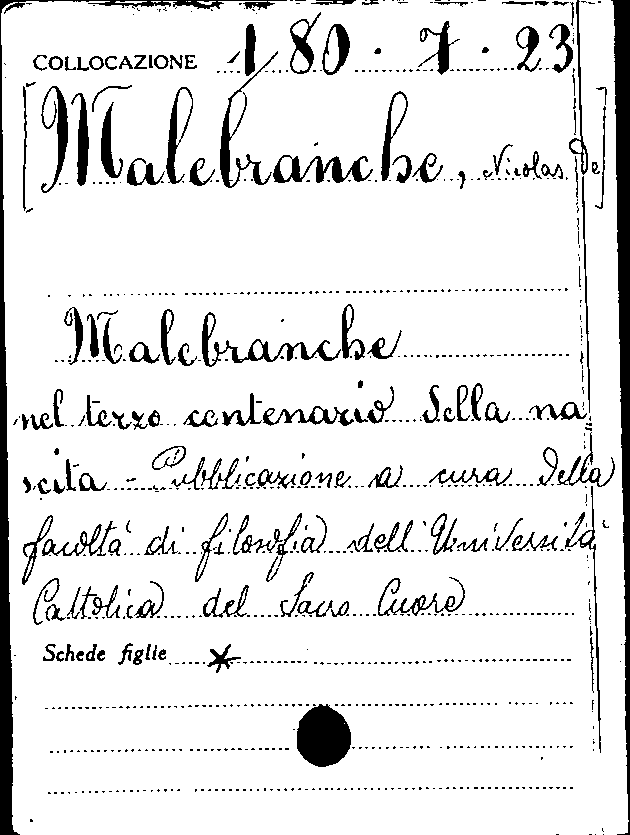 COLLOCAZIONE 180.7.23
[Malebranche, Nicolas De]
Malebranche
nel terzo centenario della na
scita - Pubblicazione a cura della
facoltà di filosofia dell'Università
Cattolica del Sacro Cuore
Schede figlie *